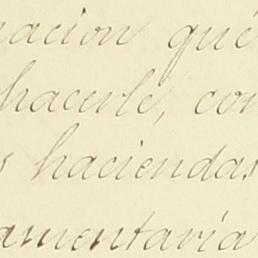 nacion qué
hacerle, con
s haciendas
amentaría